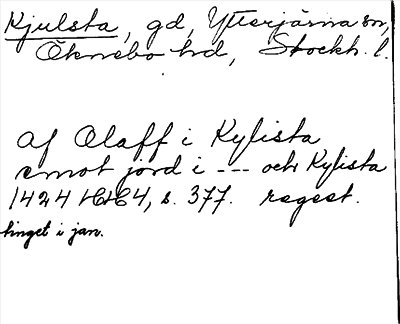 Kjulsta, gd, Ytterjärna sn,
Öknebo hd, Stockh. l.
af Olaff i Kylista
emot jord i --- och Kylista
1424 s. 377. regest.
tinget i jan.